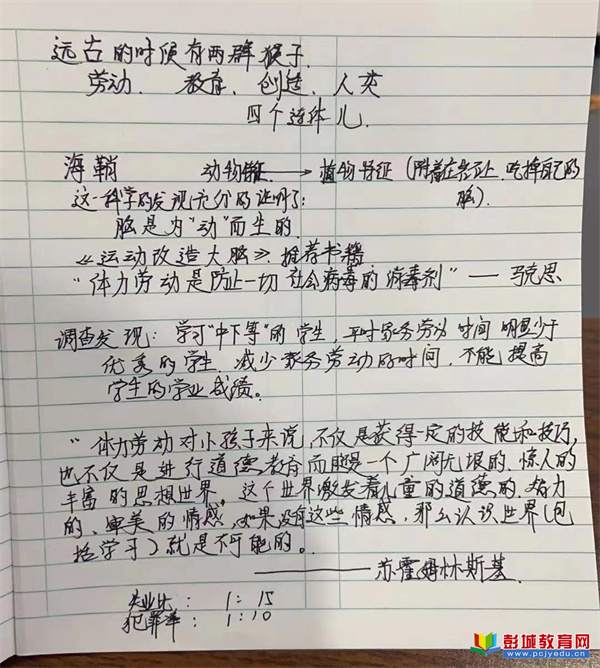 远古的时候有两群猴子.
劳动. 教育、创造、人类
四个连体儿.
海鞘 动物特征 → 植物特征 (附着在岩石上 吃掉自己的
脑).
这一科学的发现充分的证明了:
脑是为“动”而生的.
《运动改造大脑》. 推荐书籍
“体力劳动是防止一切 社会病毒的消毒剂” —— 马克思
调查发现: 学习“中下等”的学生, 平时家务劳动时间明显少于
优秀的学生. 减少家务劳动的时间, 不能提高
学生的学业成绩。
“体力劳动对小孩子来说, 不仅是获得一定的技能和技巧,
也不仅是进行道德教育 而 是一个广阔无垠的. 惊人的
丰富的思想世界。这个世界激发着儿童的道德的、智力
的、审美的情感, 如果没有这些情感, 那么认识世界(包
括学习)就是不可能的。
—— 苏霍姆林斯基.
失业比: 1:15
犯罪率: 1:10
彭城教育网
www.pcjyedu.cn